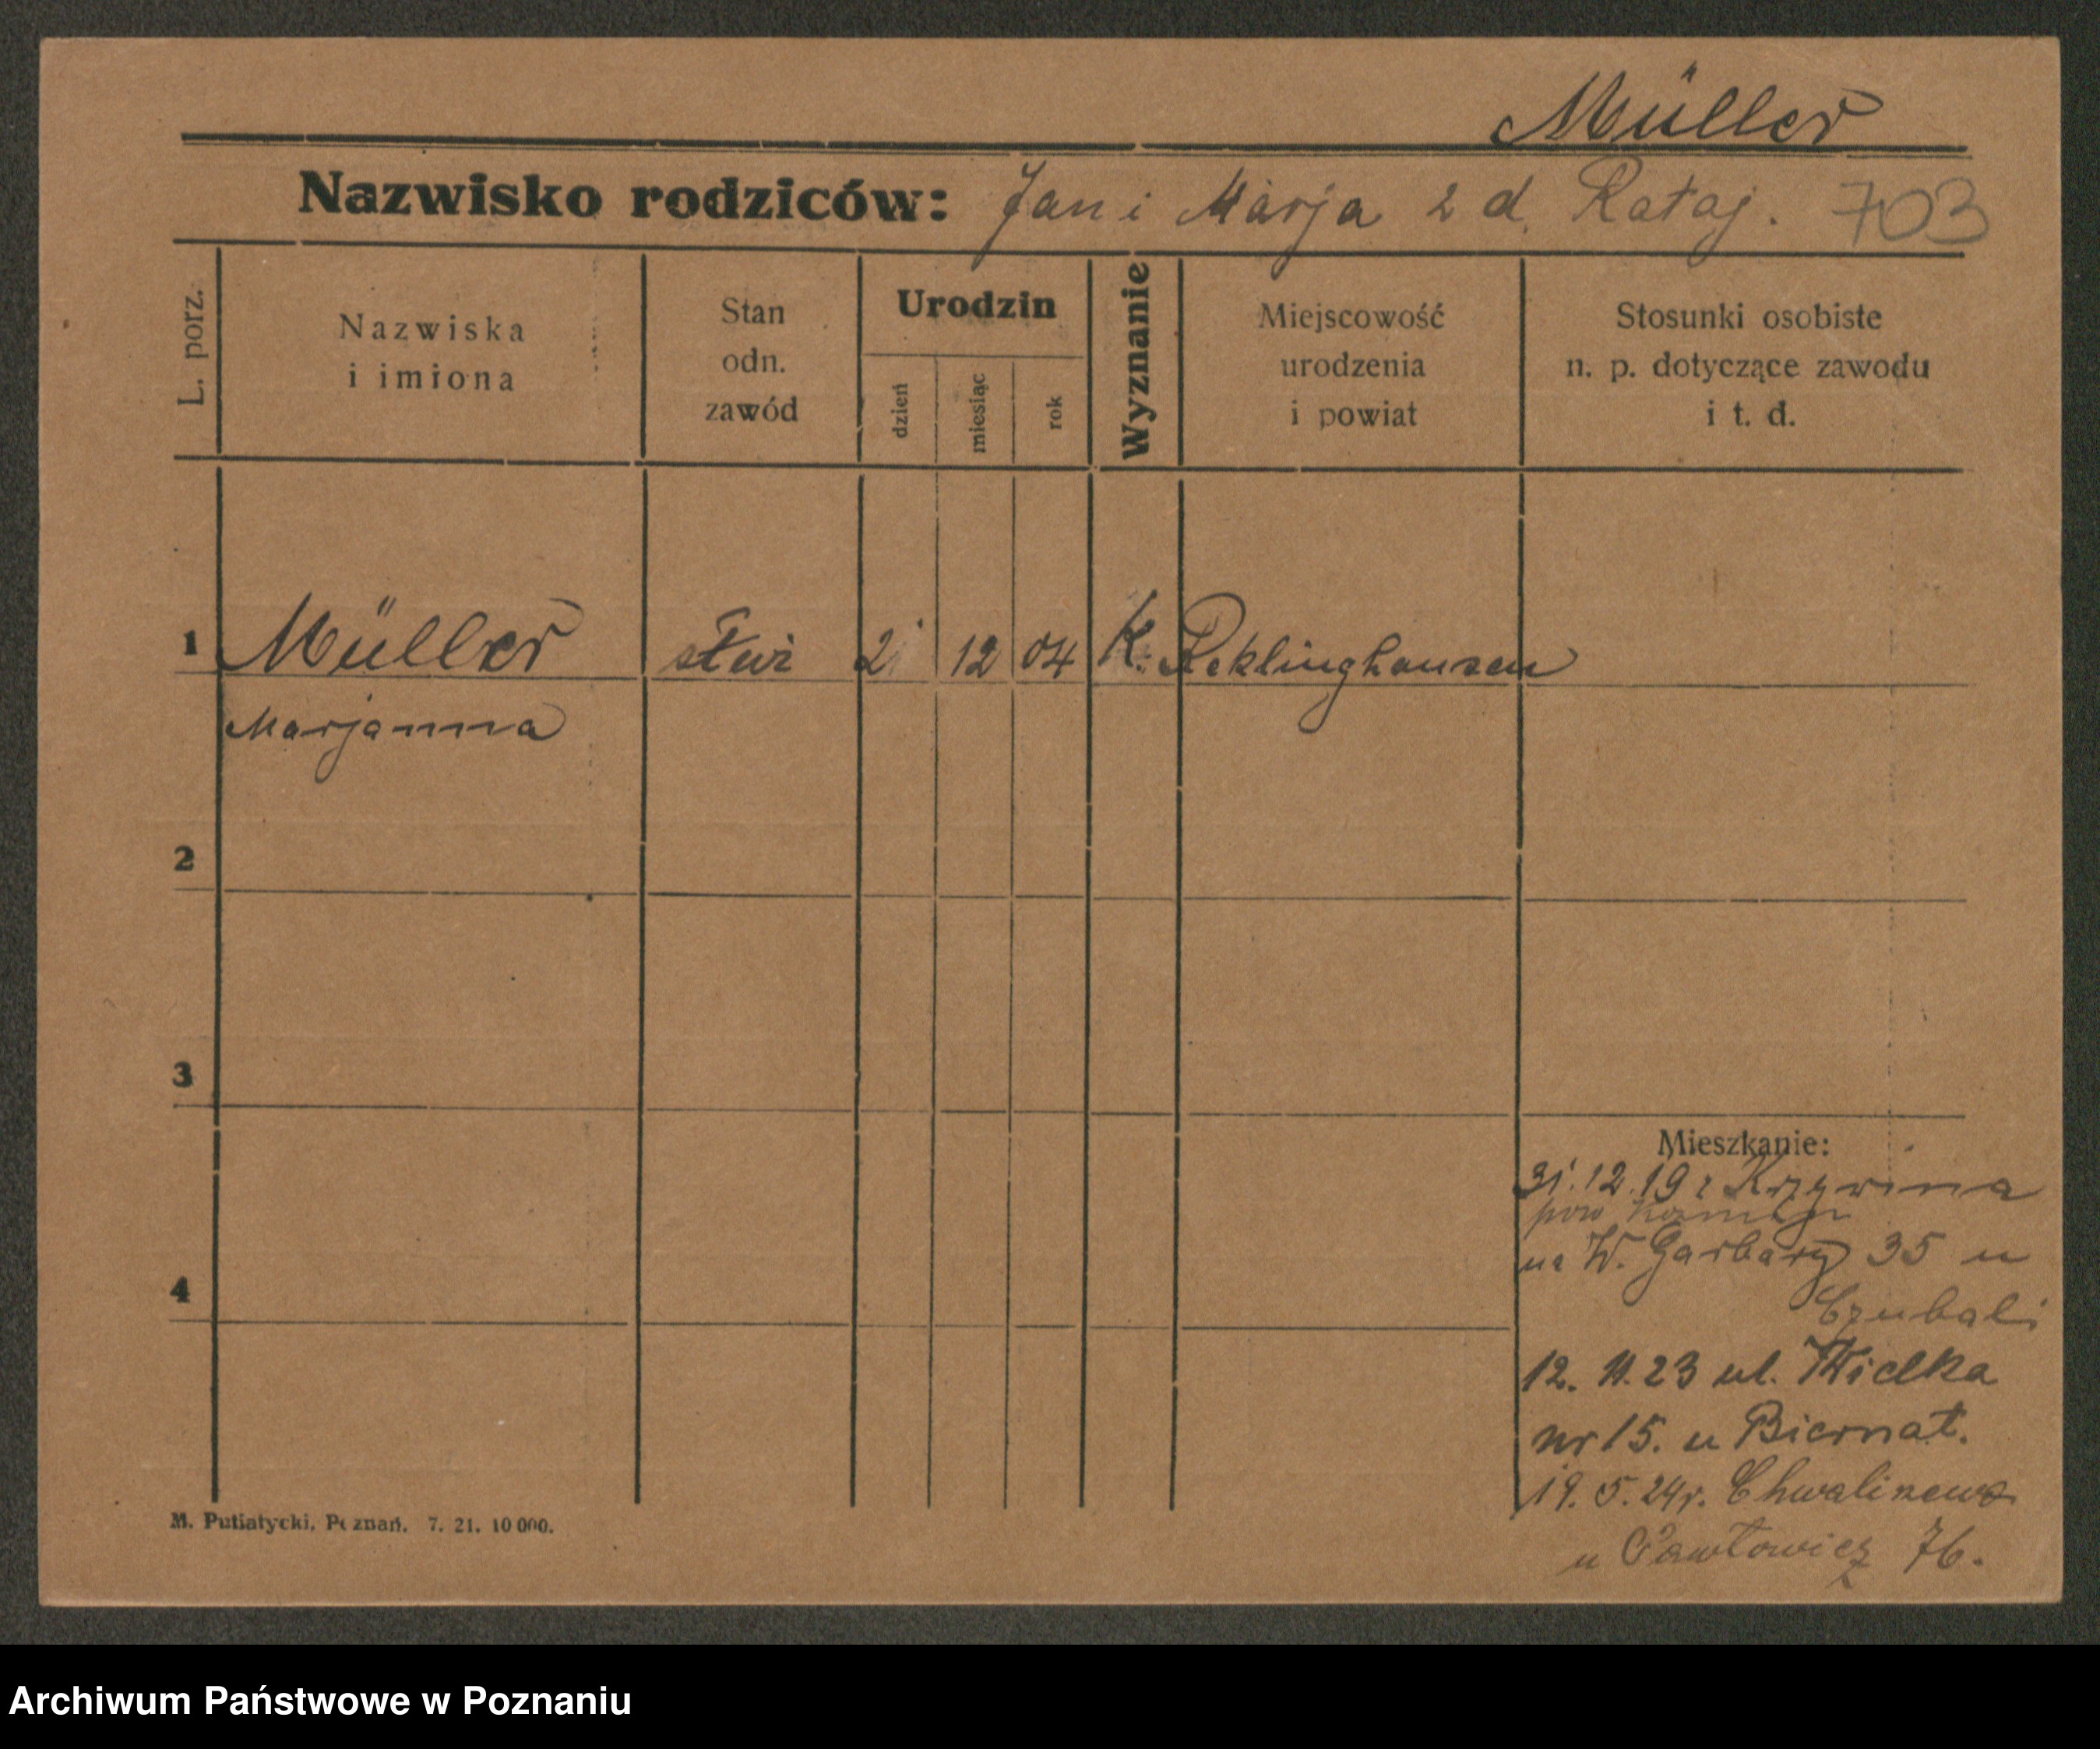 Müller
Nazwisko rodziców: Jan i Marja z d. Rataj. 703
L. porz.
Nazwiska
i imiona
Stan
odn.
zawód
Urodzin
dzień
miesiąc
rok
Wyznanie
Miejscowość
urodzenia
i powiat
Stosunki osobiste
n. p. dotyczące zawodu
i t. d.
1 Müller służ 12 04 K. Reklinghausen
Marjanna
2
3
Mieszkanie:
31.12.19 z Krzywina
pow
na W. Garbary 35 u
4
Czubali
12. 11. 23 ul. Wielka
nr 15. u Biernat.
19. 5. 24 r. Chwaliszewo
u Pawłowicz 76.
M. Putiatycki, Poznań. 7. 21. 10 000.
Archiwum Państwowe w Poznaniu